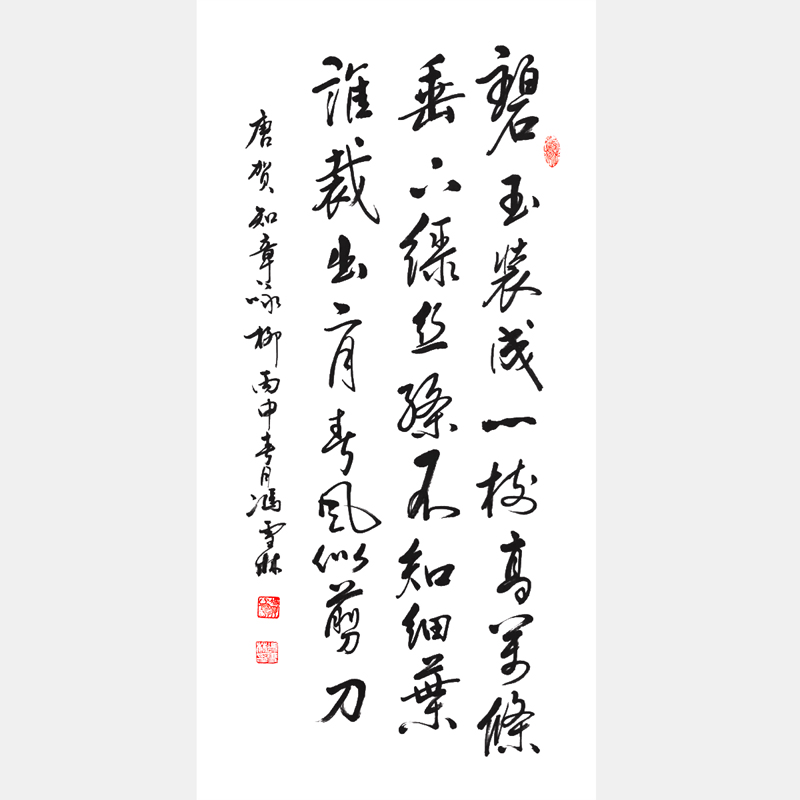 碧玉裝成一树高萬條
垂下綠丝絛不知細葉
誰裁出二月春風似剪刀
唐贺知章咏柳丙申春月馮雪林